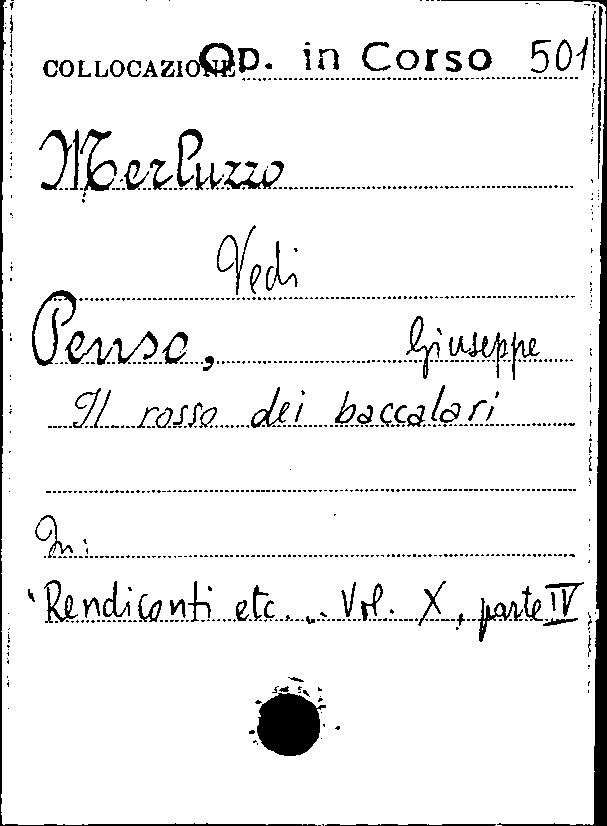 COLLOCAZIONE Op. in Corso 501
Merluzzo
Vedi
Penso, Giuseppe
Il rosso dei baccalari
In:
"Rendiconti etc. .„ Vol. X, parte IV